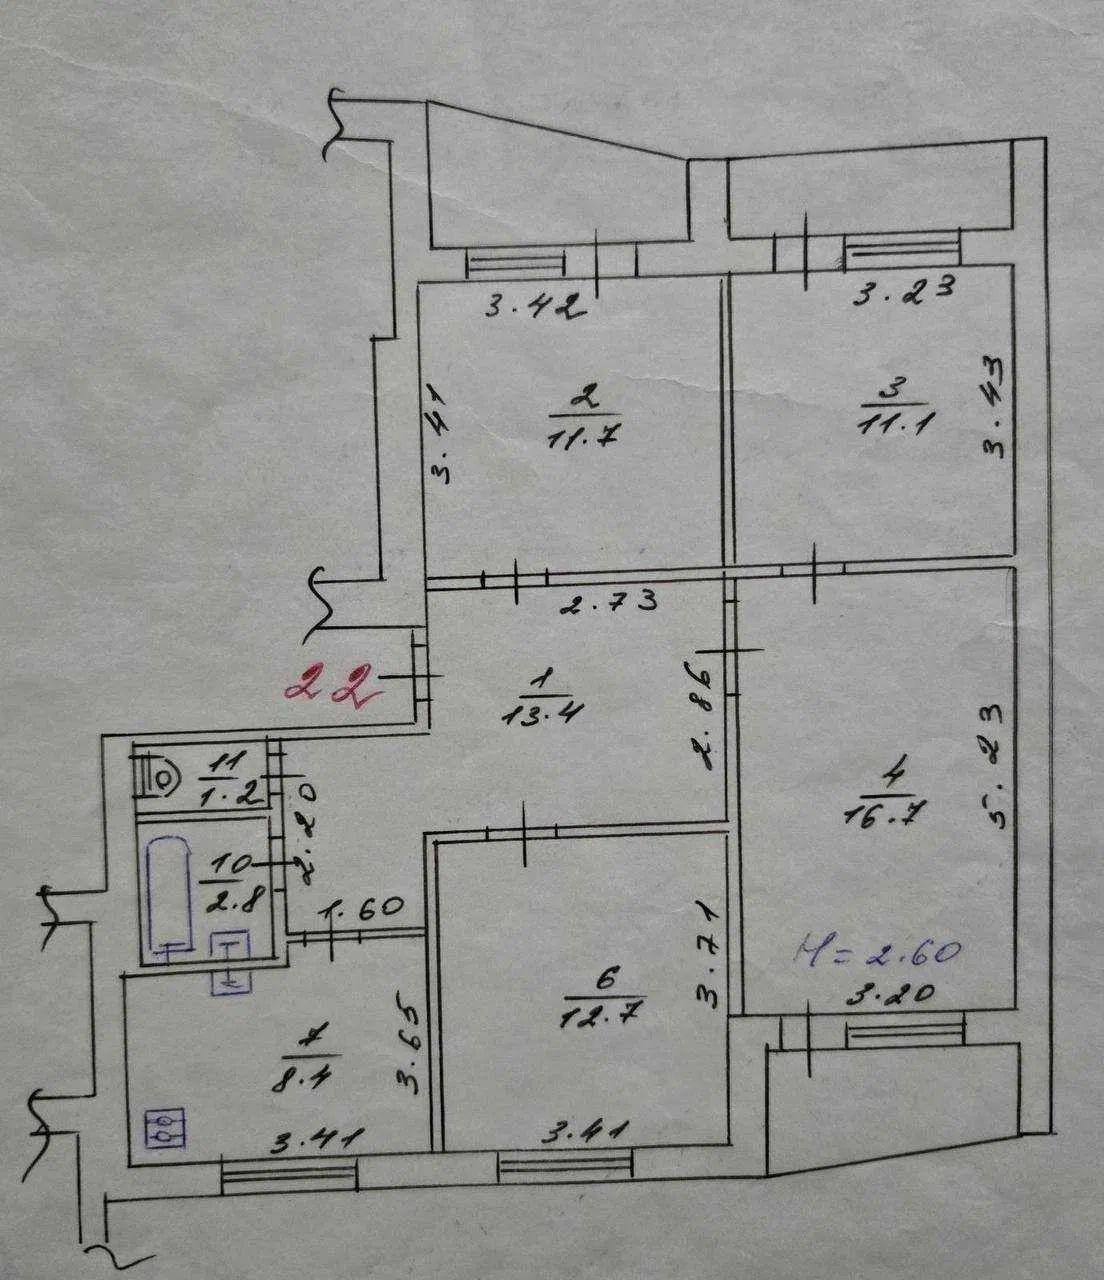 3.42
3.23
2
11.7
3
11.1
3.41
3.43
2.73
22
1
13.4
2.86
11
1.2
2.20
4
16.7
5.23
10
2.8
1.60
H=2.60
3.20
3.71
6
12.7
7
8.4
3.65
3.41
3.41